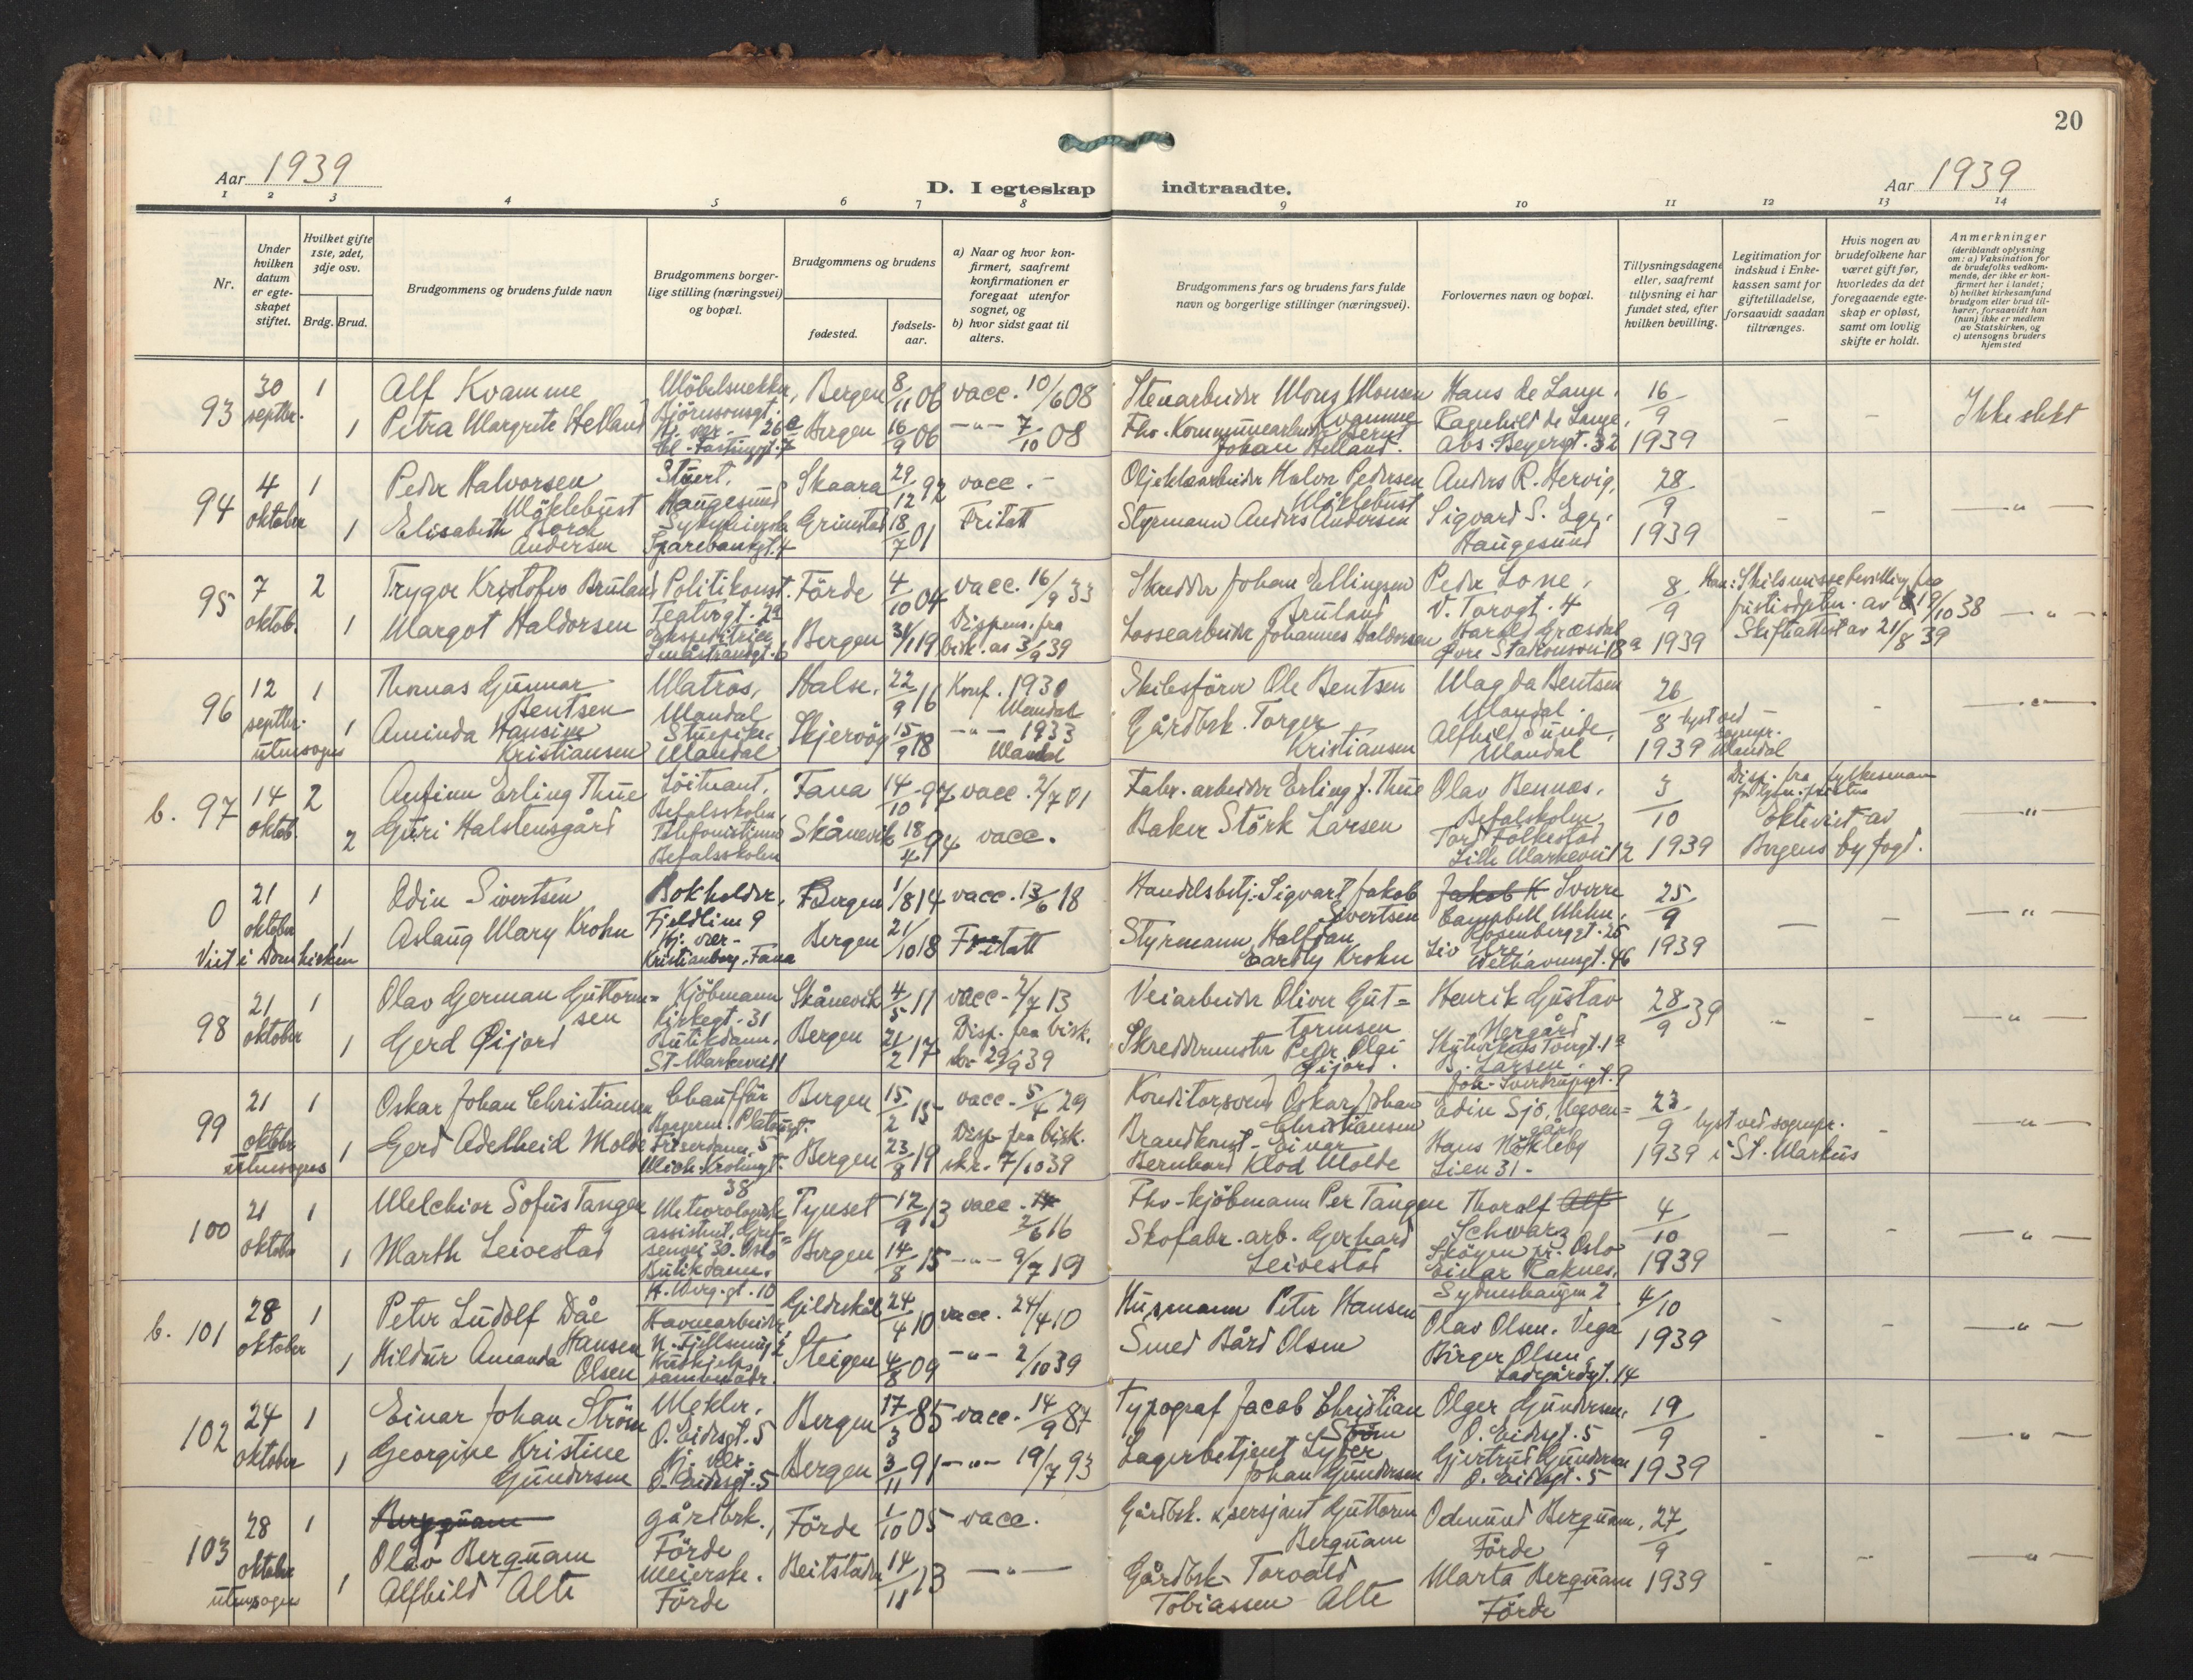 20
Aar 1939
D. I egteskap indtraadte.
Aar 1939
1 2 3 4 5 6 7 8 9 10 11 12 13 14
Nr.
Under hvilken datum er egte-skapet stiftet.
Hvilket gifte 1ste, 2det, 3dje osv.
Brdg. Brud.
Brudgommens og brudens fulde navn
Brudgommens borger-lige stilling (næringsvei) og bopæl.
Brudgommens og brudens
fødested.
fødsels-aar.
a) Naar og hvor kon-firmert, saafremt konfirmationen er foregaat utenfor sognet, og
b) hvor sidst gaat til alters.
Brudgommens fars og brudens fars fulde navn og borgerlige stillinger (næringsvei).
Forlovernes navn og bopæl.
Tillysningsdagene eller, saafremt tillysning ei har fundet sted, efter hvilken bevilling.
Legitimation for indskud i Enke-kassen samt for giftetilladelse, forsaavidt saadan tiltrænges.
Hvis nogen av brudefolkene har været gift før, hvorledes da det foregaaende egte-skap er opløst, samt om lovlig skifte er holdt.
Anmerkninger
(deriblandt oplysning om: a) Vaksination for de brudefolks vedkom-mende, der ikke er kon-firmert her i landet; b) hvilket kirkesamfund brudgom eller brud til-hører, forsaavidt han (hun) ikke er medlem av Statskirken, og c) utensogns bruders hjemsted
93 30 septbr. 1 Alf Kvamme Möbelsnekker, Björnsonsgt. Bergen 8/11 06 vacc. 10/6 08 Stenarbeider Mons Monsen Kvamme Hans de Lange, 16/9 1939 - - Ikke slekt
1 Petra Margrete Helland 26 Bergen 16/9 06 -"- 7/10 08 Fhv. Kommunearbeider Bernt Johan Helland. Ragnhild de Lange, Abs. Beyersgt. 32
94 4 oktober 1 Peder Halvorsen Möklebust Stuert, Haugesund Skaara 29/12 92 vacc. - Oljeklæarbeider Halvor Pedersen Möklebust Anders R. Hervig, 28/9 1939 - - -"-
1 Elisabeth Borch Andersen Sparebankgt. 4 Grimstad 18/7 01 Fritatt Styrmann Anders Andersen Sigvard S. Ege, Haugesund
95 7 oktob. 2 Trygve Kristofer Bruland Politikonst. Teatergt. 2a Förde 4/10 04 vacc. 16/9 33 Skredder Johan Ellingsen Bruland Peder Lone, V. Torvgt. 4 8/9 1939 Han: Skilsmissebevilling fra av 19/10 38 Skifteattest av 21/8 39 -"-
1 Margot Haldorsen Ekspeditrise Bergen 31/1 19 Dispens. fra bisk. av 3/9 39 Lossearbeider Johannes Haldorsen Harald Græsdal Øvre 18a
96 12 septbr. utensogns 1 Thomas Gunnar Bentsen Matros, Mandal Halse. 22/9 16 Konf. 1930 Mandal Skibsförer Ole Bentsen Magda Bentsen Mandal. 26/8 1939 lyst ved sognepr. Mandal - -"-
1 Aminda Hansine Kristiansen Stuepike. Mandal Skjervög 15/9 18 -"- 1933 Mandal Gårdbrk. Torger Kristiansen Alfhild Sunde, Mandal
b. 97 14 oktob. 2 Anfinn Erling Thue Löitnant, Befalsskolen, Fana 14/10 97 vacc. 2/7 01 Fabr. arbeider Erling J. Thue Olav Rennos, Befalskolen 3/10 1939 Disp. fra fylkesmann Bergens byfogd. -"-
2 Guri Halstensgård Telefonistinne Befalsskolen Skånevik 18/4 94 vacc. Baker Störk Larsen Tord Folkestad Lille Markevei 12
0 21 oktober Viet i Domkirken 1 Odin Sivertsen Bokholder, Fjeldlien 9 Bergen 1/8 14 vacc. 13/6 18 Handelsbetj. Sigvart Jakob Sivertsen Sverre Campbell Rosenberggt. 25 25/9 1939 - - -"-
1 Aslaug Mary Krohn Kristianborg. Fana Bergen 21/10 18 Fritatt Styrmann Halfdan Krohn Liv Welhavensgt. 46
98 21 oktober 1 Olav German Guttormsen Kjöbmann Kirkegt. 31 Skånevik 4/5 11 vacc. 2/7 13 Veiarbeider Oliver Guttormsen Henrik Gustav Nergård 28/9 39 - - -"-
1 Gerd Øijord Butikdame, St. Markevei 11 Bergen 21/2 17 Disp. fra bisk. 29/9 39 Skreddermester Peder Olai Øijord. B. Larsen. Joh. Sverdrupsgt. 9
99 21 oktober utensogns 1 Oskar Johan Christiansen Chaufför Borgerm. Platougt. Bergen 15/2 15 vacc. 5/4 29 Konditorsvend Oskar Johan Christiansen Edin Sjo, 23/9 1939 lyst ved sognepr. i St. Markus - -"-
1 Gerd Adelheid Molde Mich. Krohnsgt. 38 Bergen 23/8 19 Disp. fra bisk. skr. 7/10 39 Brandkonst. Einar Bernhard Klod Molde Hans Nökleby Lien 31.
100 21 oktober 1 Melchior Sofus Tangen Meteorologisk assistent, Grefsenvei 30. Oslo Tynset 12/9 13 vacc. 2/6 16 Fhv. kjöbmann Per Tangen Thoralf Schwarz Skögen pr. Oslo 4/10 1939 - - -"-
1 Marth Leivestad Butikdame. Bergen 14/8 15 -"- 9/7 19 Skofabr. arb. Gerhard Leivestad Einar Raknes, Sydneshaugen 2
b. 101 28 oktober 1 Peter Ludolf Dåe Hansen Havnearbeider, Gildeskål 24/4 10 vacc. 24/4 10 Husmann Peter Hansen Olav Olsen. Vega 4/10 1939 - - -"-
1 Hildur Amanda Olsen Steigen 4/8 09 -"- 2/10 39 Smed Bård Olsen Birger Olsen, Ladegårdsgt. 14
102 24 oktober 1 Einar Johan Ström Mekler. O. Eidesgt. 5 Bergen 17/3 85 vacc. 14/9 87 Typograf Jacob Christian Ström Olger Gundersen, O. Eidesgt. 5 19/9 1939 - - -"-
1 Georgine Kristine Gundersen O. Eidesgt. 5 Bergen 3/11 91 -"- 19/7 93 Lagerbetjent Lyder Johan Gundersen Gjertrud Gundersen O. Eidesgt. 5
103 28 oktober utensogns 1 Bergquam Olav Berquam gårdbrk., Förde Förde 1/10 05 vacc. Gårdbrk. & sersjant Guttorm Berquam Odmund Berquam, Förde 27/9 1939 - - -"-
1 Alfhild Alte meierske. Förde Beitstaden 14/11 13 -"- Gårdbrk. Torvald Tobiassen Alte Marta Berquam Förde